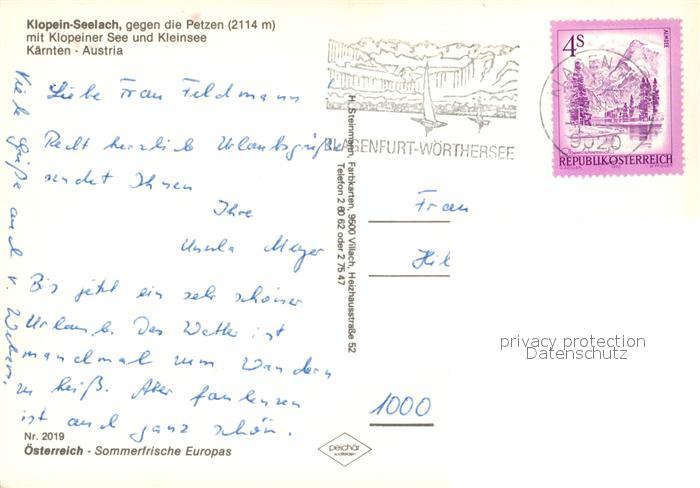 Klopein-Seelach, gegen die Petzen (2114 m)
mit Klopeiner See und Kleinsee
Kärnten - Austria
Liebe Frau Feldmann!
Recht herzlich Urlaubsgrüße
sendet Ihnen
Ihre
Ursula Meyer
Bis jetzt ein sehr schöner
Urlaub. Das Wetter ist
manchmal zum Wandern
zu heiß. Aber faulenzen
ist auch ganz schön.
Viele Grüße auch v.
Nr. 2019
Österreich - Sommerfrische Europas
H. Steinmann, Farbkarten, 9500 Villach, Heizhausstraße 52
Telefon 2 60 62 oder 2 75 47
peichär
KLAGENFURT-WÖRTHERSEE
4S
ALMSEE
REPUBLIK ÖSTERREICH
KLAGENF
9020
Frau
Hil
1000
privacy protection
Datenschutz